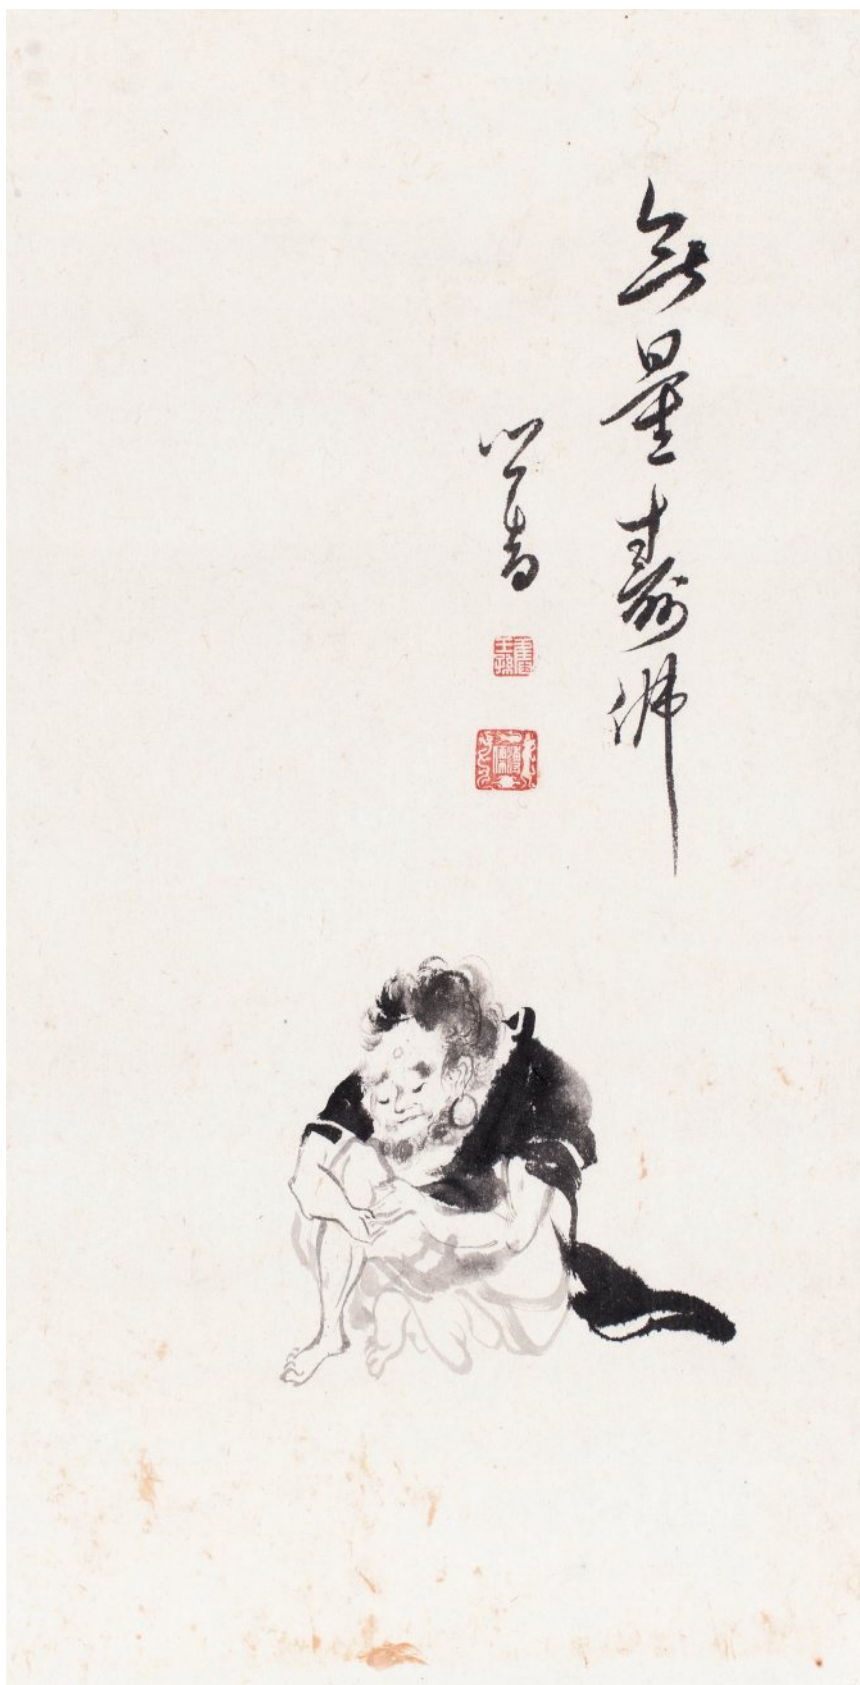 無量壽佛
心畬
舊王孫
溥儒